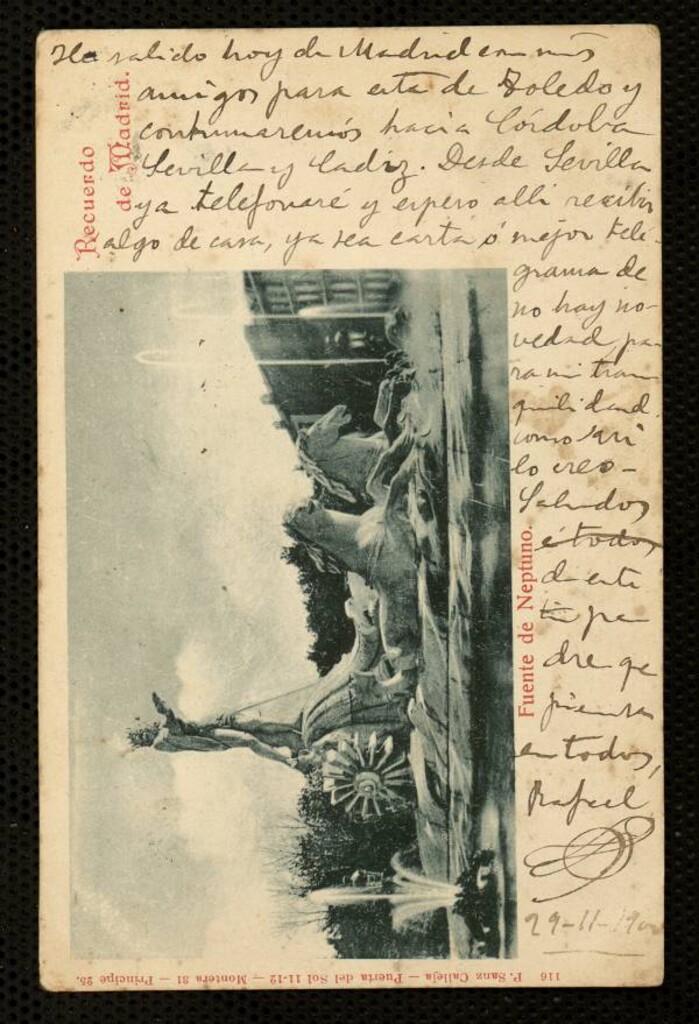 He salido hoy de Madrid con mis
amigos para esta de Toledo y
continuaremos hacia Córdoba
Sevilla y Cadiz. Desde Sevilla
ya telefonaré y espero alli recibir
algo de casa, ya sea carta ó mejor telé-
grama de
no hay no-
vedad pa-
ra mi tran
quilidad.
como asi
lo creo-
Saludos
é todos
de este
pa
dre qe
piensa
en todos,
Rafael
29-11-190
Recuerdo
de Madrid.
Fuente de Neptuno.
116 P. Sanz Calleja — Puerta del Sol 11-12 — Montera 31 — Principe 25.